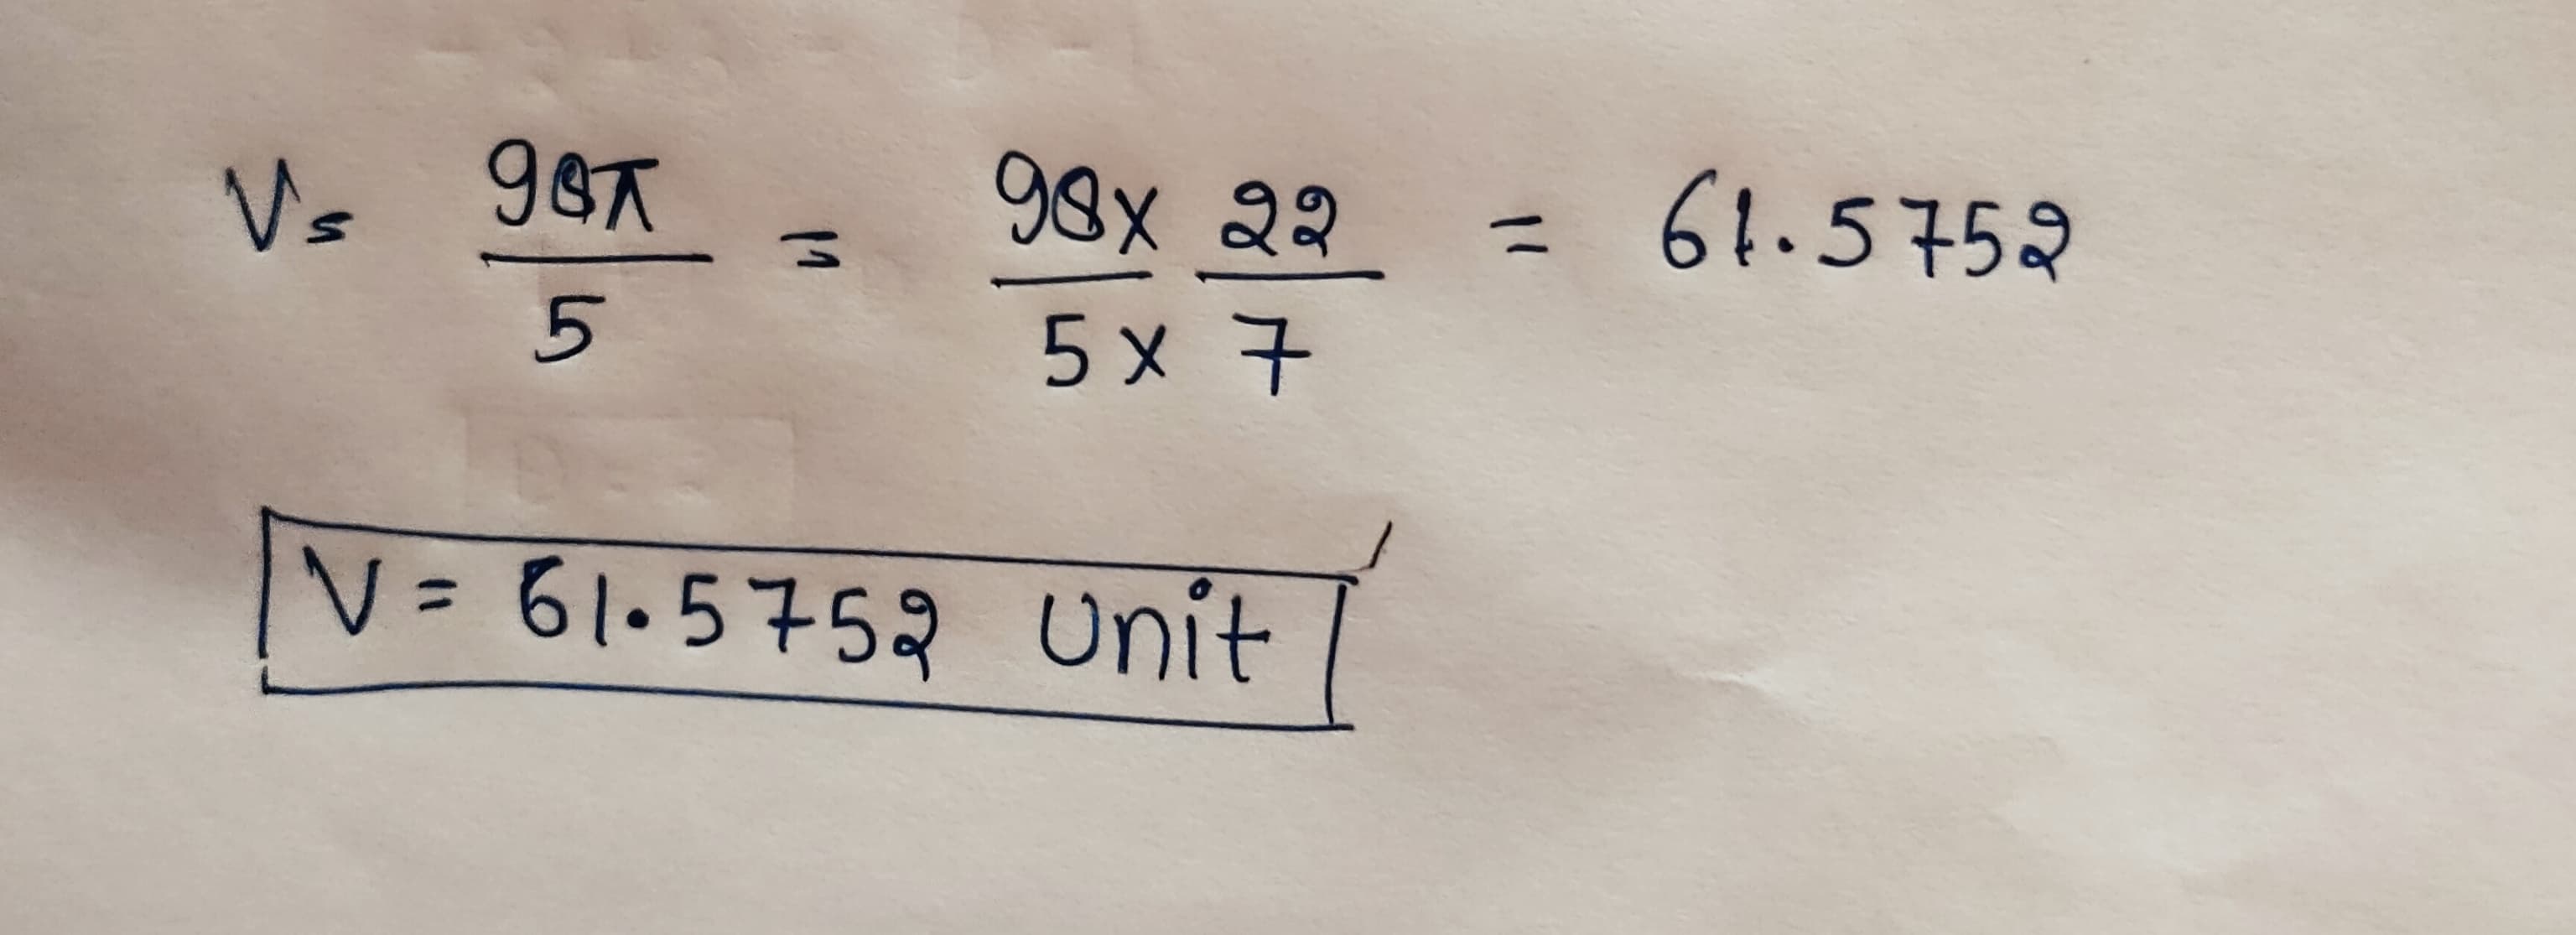 V = 98π/5 = 98 x 22 / 5 x 7 = 61.5752
V = 61.5752 Unit